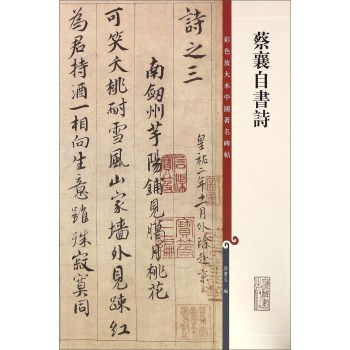 蔡襄自書詩
彩色放大本中國著名碑帖
孫寶文 編
詩之三
皇祐二年十一月外除赴京
南劒州芋陽鋪見臘月桃花
可笑夭桃耐雪風山家墻外見踈紅
為君持酒一相向生意雖殊寂寞同